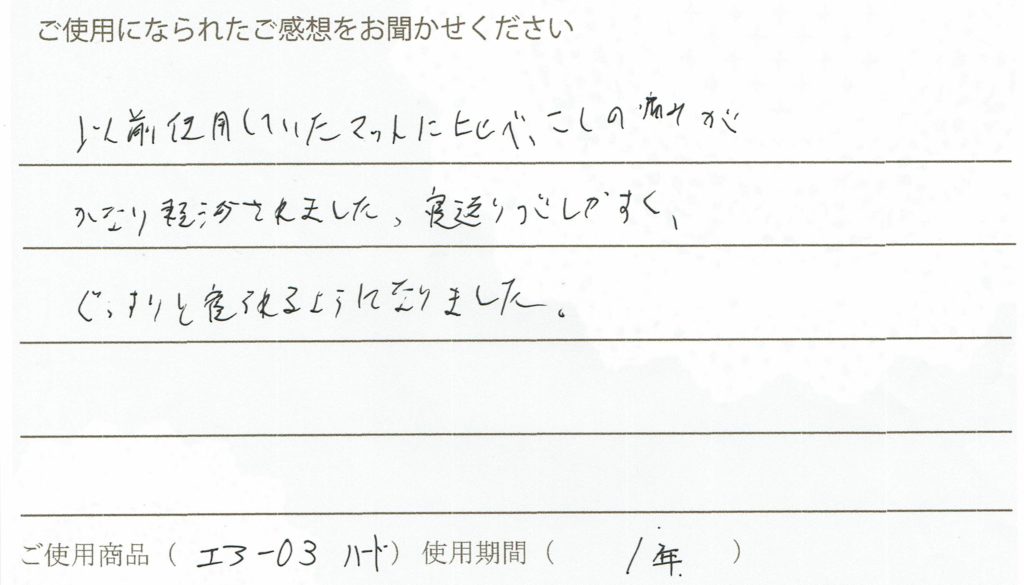 ご使用になられたご感想をお聞かせください
以前使用していたマットに比べ、こしの痛みが
かなり軽減されました。寝返りつどしがすく、
ぐっすりと寝れるようになりました。
ご使用商品（エアー03 ハード）使用期間（ 1年 ）